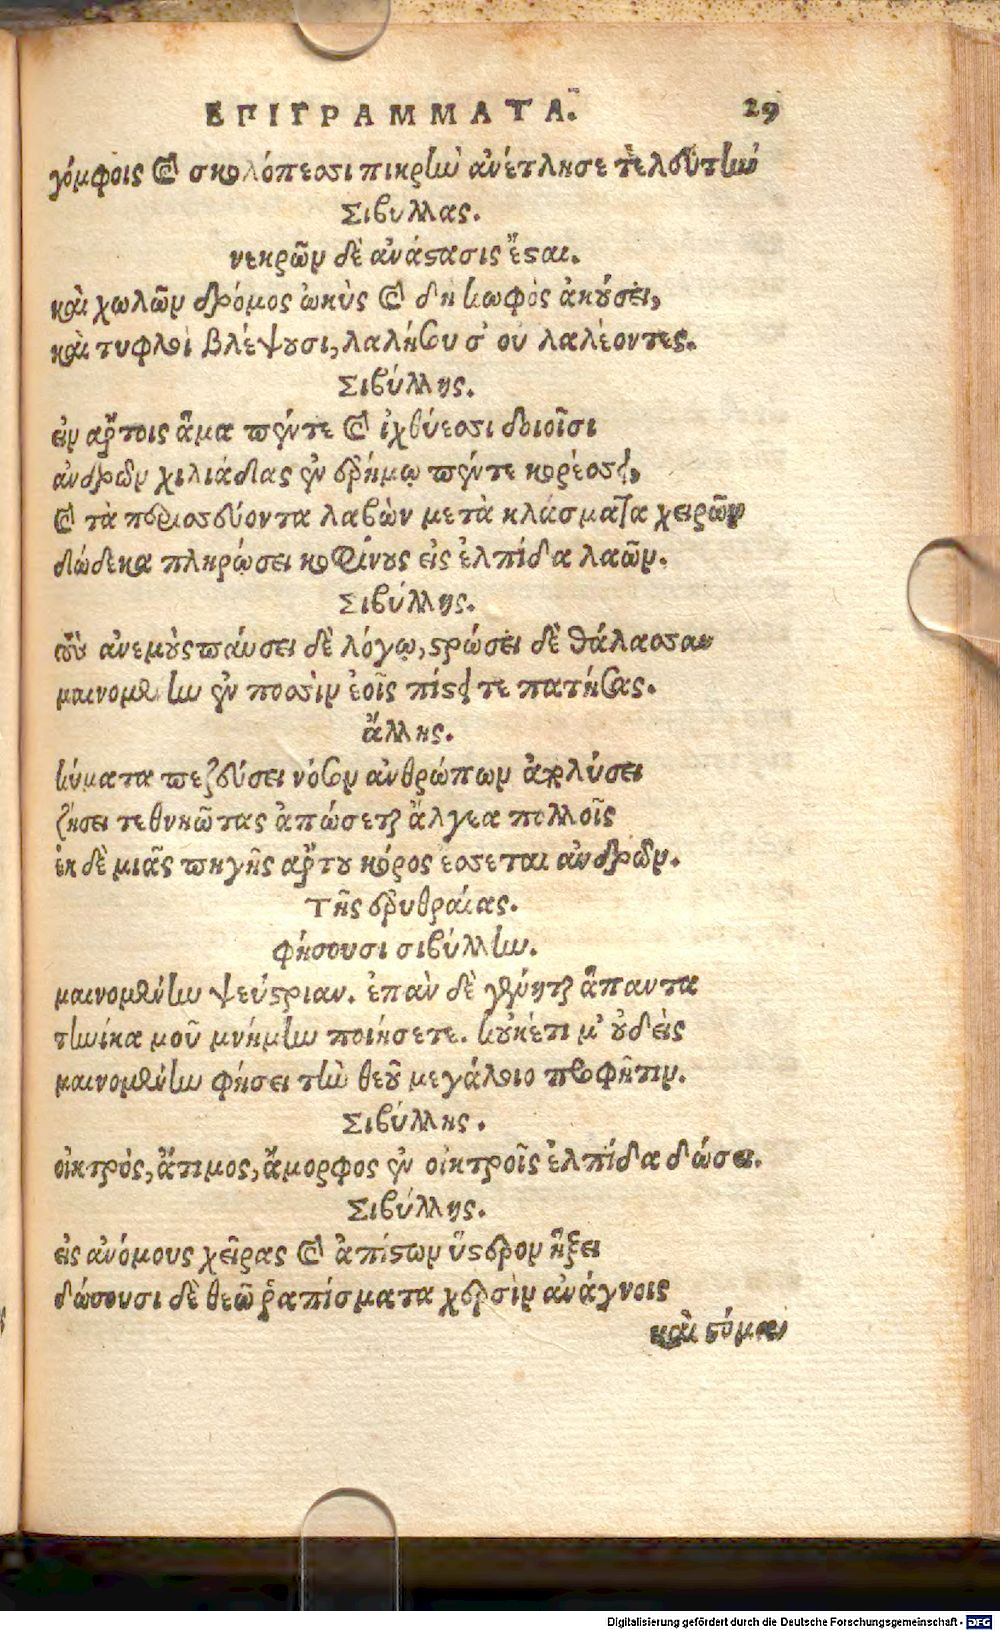 ΕΠΙΓΡΑΜΜΑΤΑ. 29
γόμφοις καὶ σκολόπεσσι πικρὴν ἀνέτλησε τελευτὴν
Σιβυλλας.
νεκρῶν δὲ ἀνάστασις ἔσται.
καὶ χωλῶν δρόμος ὠκὺς καὶ δὴ κωφὸς ἀκούσει,
καὶ τυφλοὶ βλέψουσι, λαλήσουσ' ου λαλέοντες.
Σιβύλλης.
εἰν αρτοις ἅμα πέντε καὶ ἰχθύεσσι δοιοῖσι
ἀνδρῶν χιλιάδας ἐν ἐρήμῳ πέντε κορέσσει,
καὶ τὰ περισσεύοντα λαβὼν μετὰ κλάσματα χειρῶν
δώδεκα πληρώσει κοφίνους εἰς ἐλπίδα λαῶν.
Σιβύλλης.
ἀνεμοὺς παύσει δὲ λόγῳ, στρώσει δὲ θάλασσαν
μαινομένην ἐν ποσσὶν ἑοῖς πίστει τε πατήσας.
ἄλλης.
κύματα πεζεύσει νόσον ἀνθρώπων
ζήσει τεθνηῶτας ἀπώσεται ἄλγεα πολλοῖς
ἐκ δὲ μιᾶς πηγῆς αρτου κόρος εσσεται ἀνδρῶν.
Τῆς ἐρυθραίας.
φήσουσι σιβύλλην.
μαινομένην ψεύστριαν. ἐπὰν δὲ γένηται ἅπαντα
τηνίκα μοῦ μνήμην ποιήσετε. κοὐκέτι μ' οὐδεὶς
μαινομένην φήσει τὴν θεοῦ μεγάλοιο προφῆτιν.
Σιβύλλης.
οἰκτρὸς, ἄτιμος, ἄμορφος ἐν οἰκτροῖς ἐλπίδα δώσει.
Σιβύλλης.
εἰς ἀνόμους χεῖρας καὶ ἀπίστων ὕστερον ἥξει
δώσουσι δὲ θεῶ ῥαπίσματα χερσὶν ἀνάγνοις
καὶ στόμασι
Digitalisierung gefördert durch die Deutsche Forschungsgemeinschaft - DFG